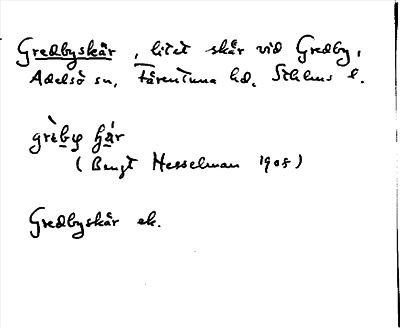 Gredbyskär, litet skär vid Gredby,
Adelsö sn, Färentuna hd, Sthlms l.
(Bengt Hesselman 1905)
Gredbyskär ek.